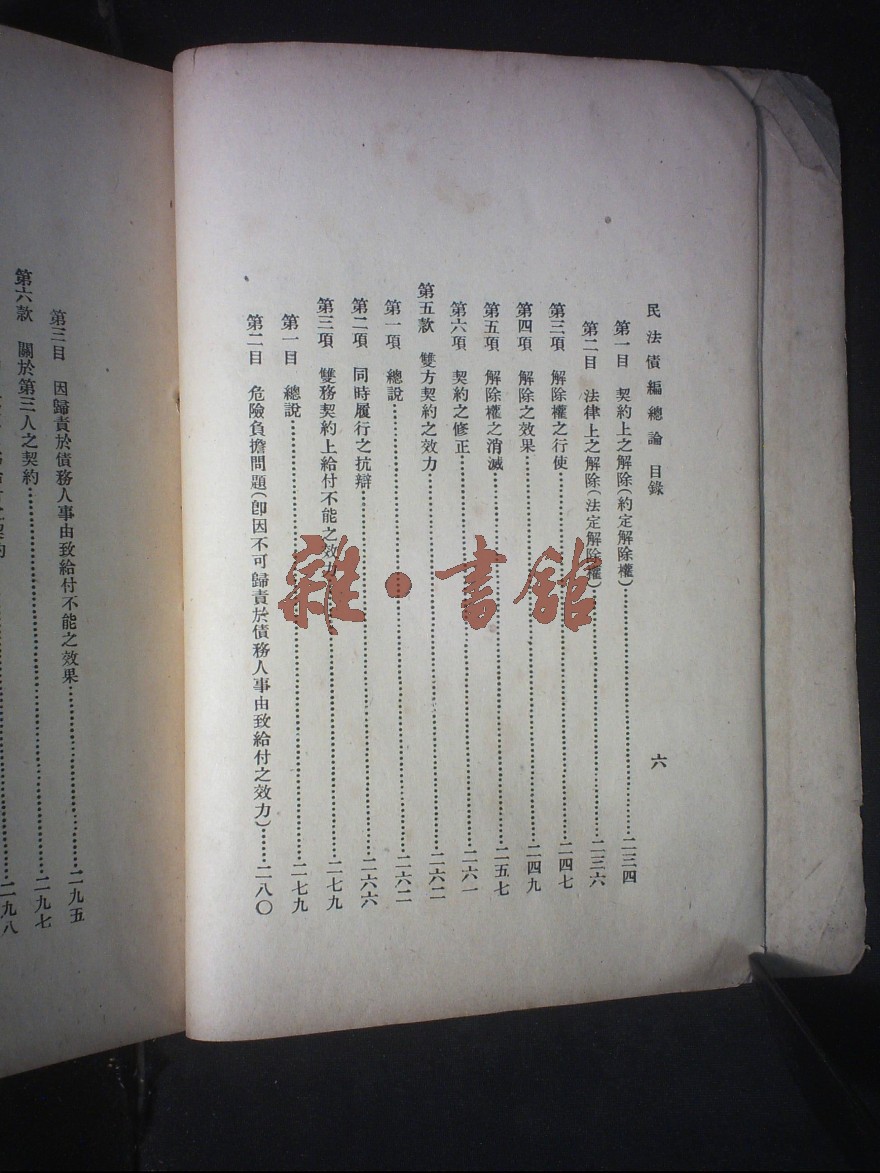 民法債編總論 目錄 六
第一目 契約上之解除(約定解除權)……二三四
第二目 法律上之解除(法定解除權)……二三六
第三項 解除權之行使……二四七
第四項 解除之效果……二四九
第五項 解除權之消滅……二五七
第六項 契約之修正……二六一
第五款 雙方契約之效力……二六二
第一項 總說……二六二
第二項 同時履行之抗辯……二六六
第三項 雙務契約上給付不能之效力……二七九
第一目 總說……二七九
第二目 危險負擔問題(卽因不可歸責於債務人事由致給付之效力)……二八〇
第三目 因歸責於債務人事由致給付不能之效果……二九五
第六款 關於第三人之契約……二九七
二九八
雜·書館